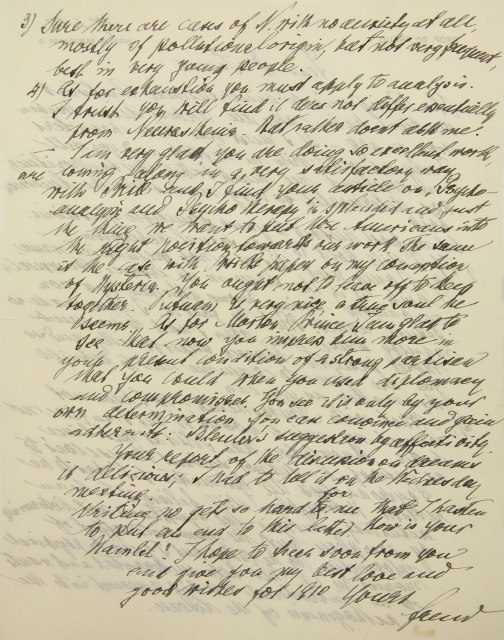 3) Sure there are cases of N. with no anxiety at all
mostly of pollutional origin, but not very frequent,
best in very young people.
4) As for exhaustion you must apply to analysis.
I trust you will find it does not differ essentially
from Neurasthenia. But rather don't ask me.
— I am very glad you are doing so excellent work
are coming along in a very satisfactory way
with Brill. Truly, I find your article on "Psycho-
analysis and Psychotherapy" is splendid and just
the thing we want to the Americans into
the right position towards our work. The same
is the case with Brill's paper on my conception
of Hysteria. You ought not to leave off to keep
together. Putnam is very nice, a true soul he
seems. As for Morton Prince I am glad to
see that now you impress him more in
your present condition of a strong partisan
that you could when you used diplomacy
and compromises. You see it is only by your
own determination you can convince and gain
adherents. Bleuler's suggestion by affectivity.
Your report of the discussion on dreams
is delicious; I had to tell it on the Wednesday
meeting.
for
Writing so gets so hard me that I hasten
to put an end to this letter. How is your
"Hamlet"? I hope to hear soon from you
and give you my best love and
good wishes for 1910 Yours
Freud